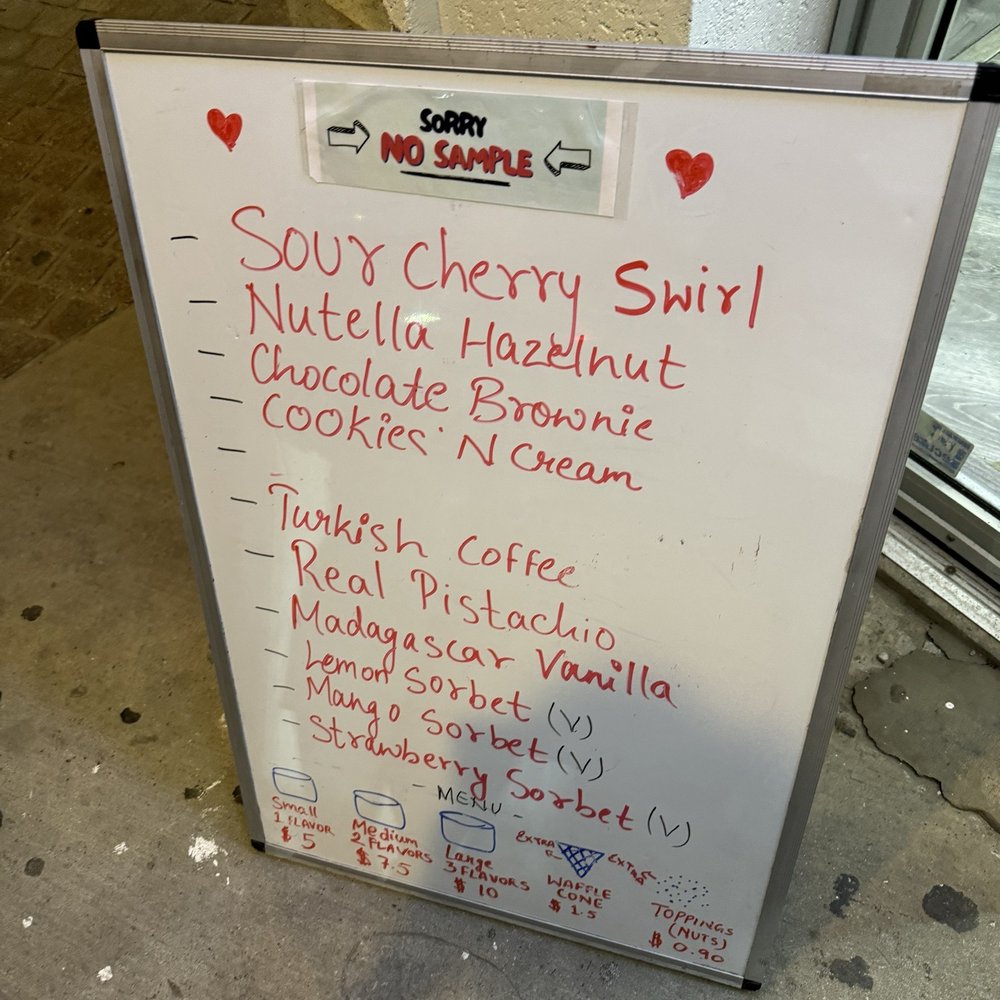 SORRY
NO SAMPLE
- Sour Cherry Swirl
- Nutella Hazelnut
- Chocolate Brownie
- Cookies N Cream
-
- Turkish Coffee
- Real Pistachio
- Madagascar Vanilla
- Lemon Sorbet (V)
- Mango Sorbet (V)
- Strawberry Sorbet (V)
- MENU -
Small
1 FLAVOR
$ 5
Medium
2 FLAVORS
$ 7.5
Large
3 FLAVORS
$ 10
EXTRA
WAFFLE
CONE
$ 1.5
EXTRA
TOPPINGS
(NUTS)
$ 0.90